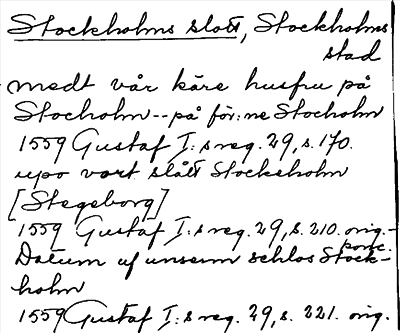 Stockholms slott, Stockholms
stad
medt vår käre husfru på
Stocholm -- på för:ne Stocholm
1559 Gustaf I:s reg. 29, s. 170.
upo vort slått Stockeholm
[Stegeborg]
1559 Gustaf I:s reg. 29, s. 210. orig.-
conc.
Datum uf unserm schlos Stock-
holm
1559 Gustaf I:s reg. 29, s. 221. orig.